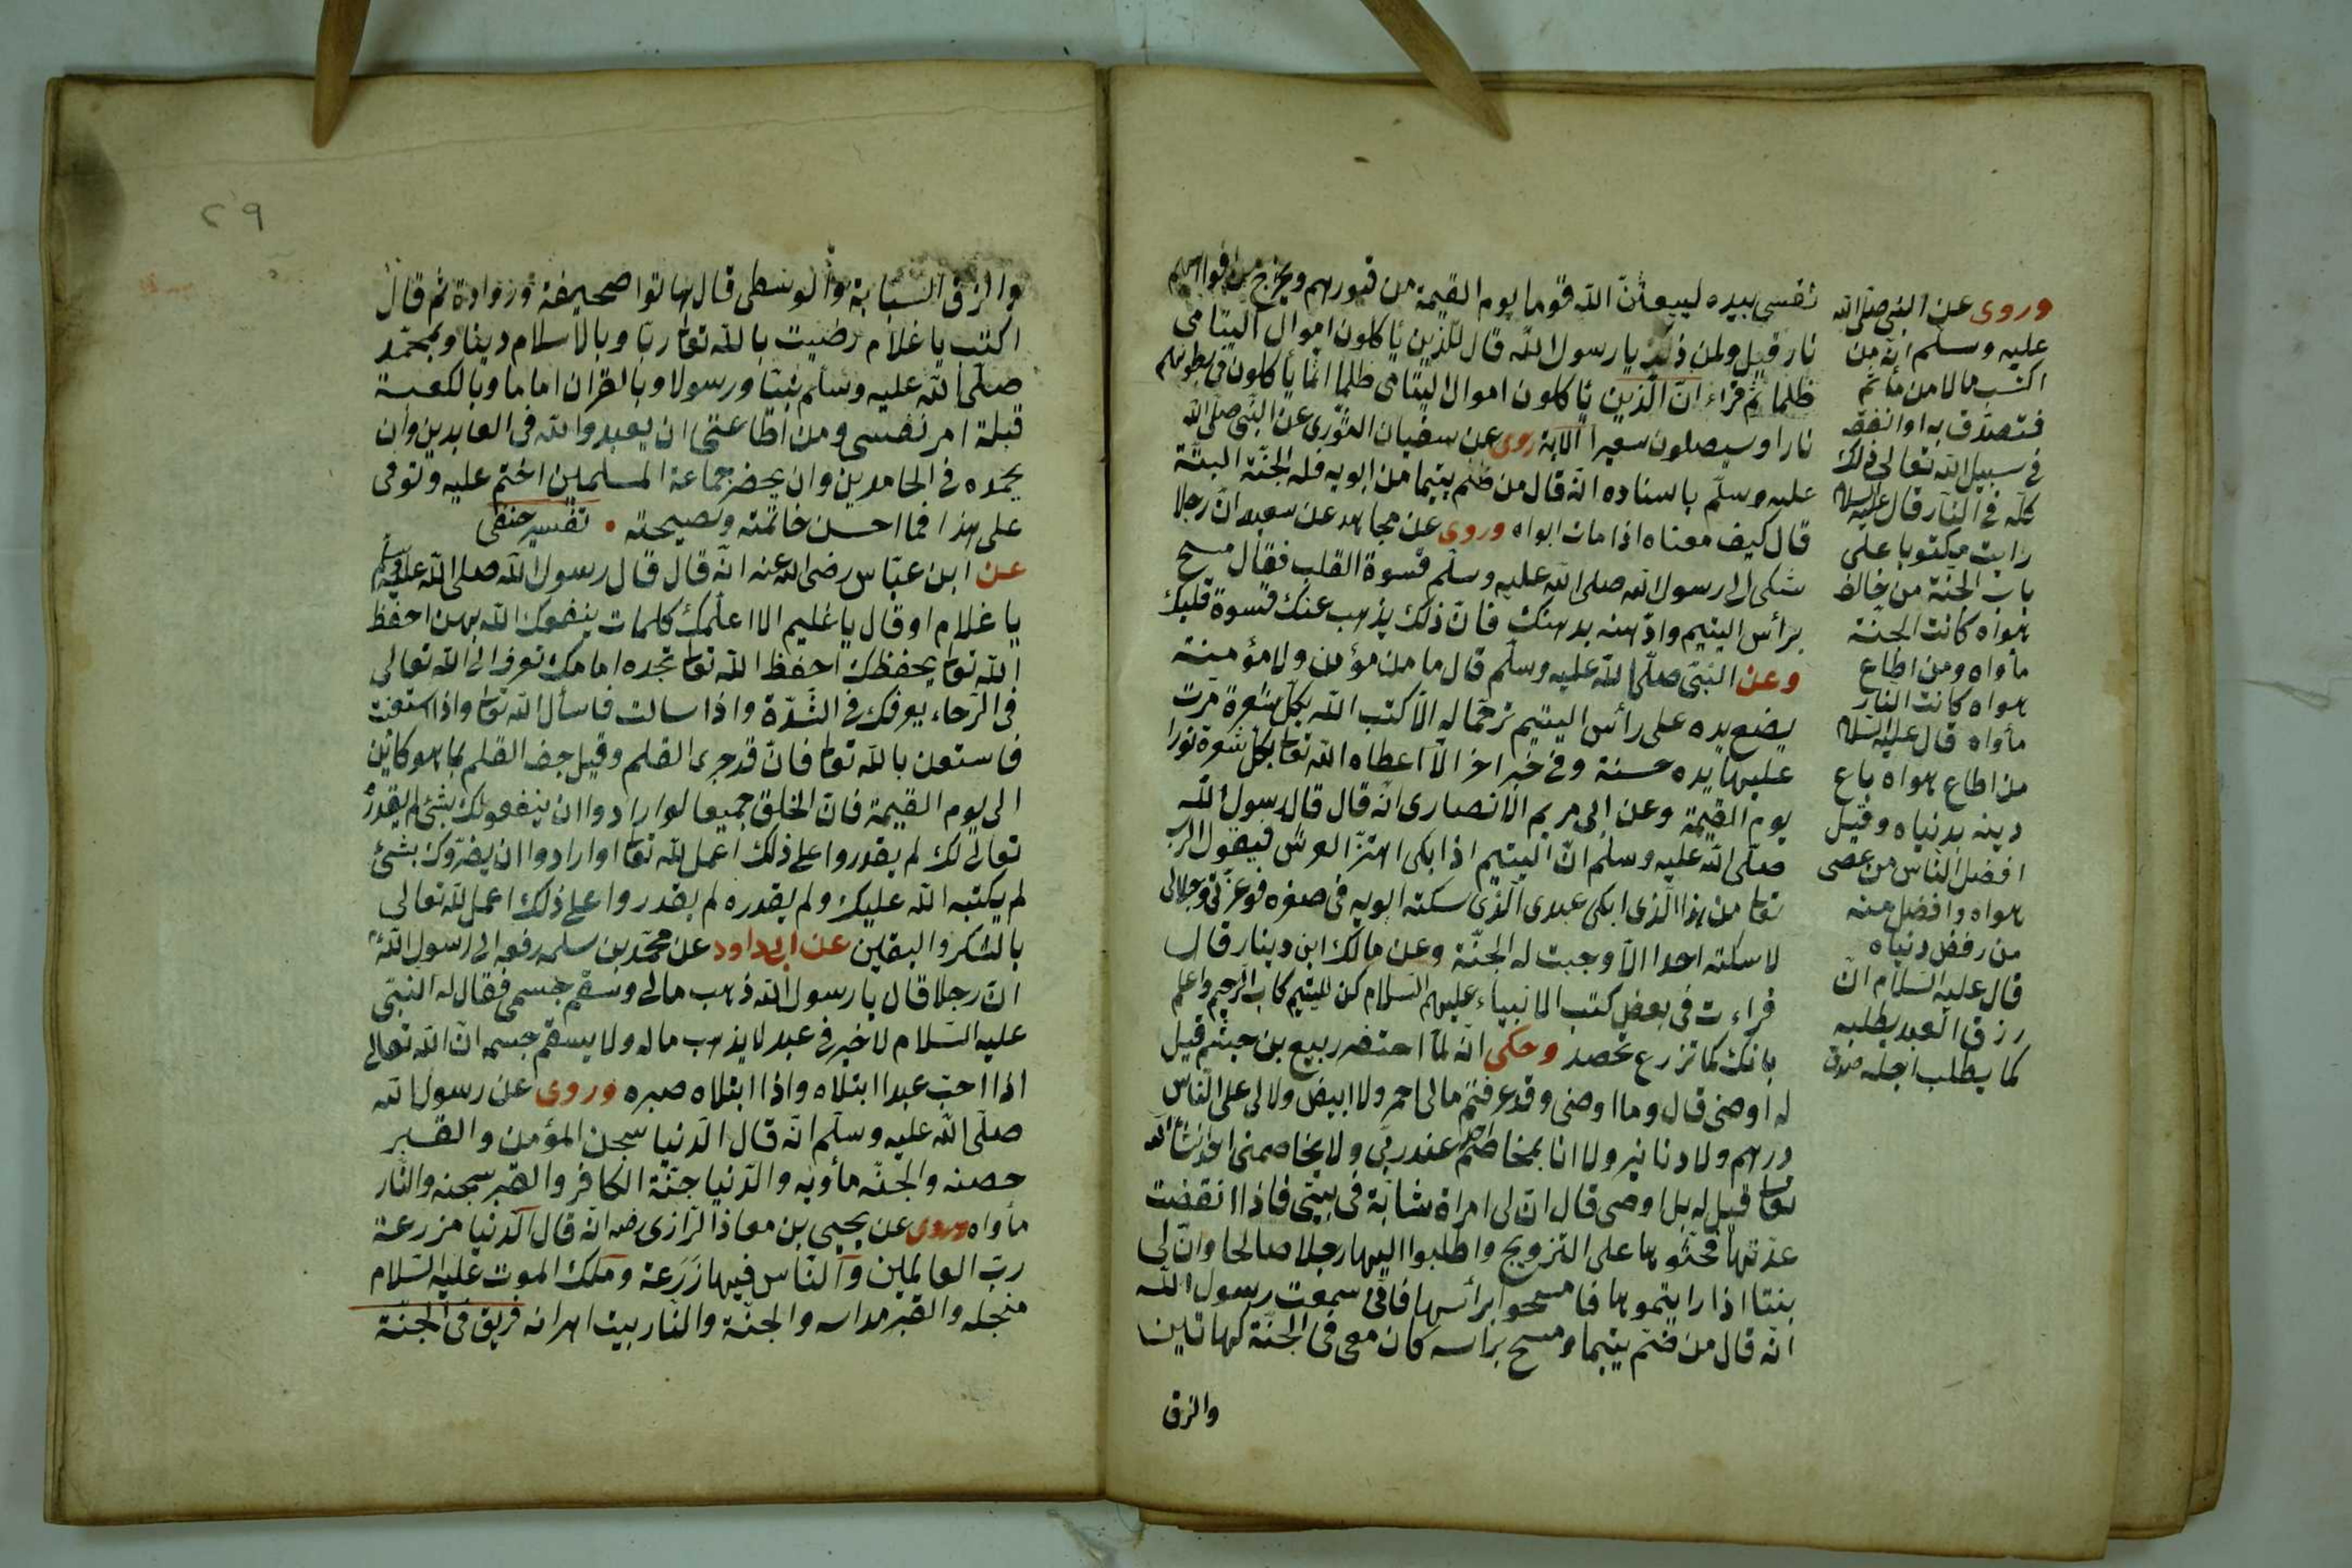 نفسى بيده ليبعثنّ الله قوما يوم القيمة من قبورهم ويخرج من افواههم
نار قيل ولمن ذلك يا رسول الله قال للذين ياكلون اموال اليتامى
ظلما ثم قراء انّ الذين ياكلون اموال اليتامى ظلما انما ياكلون فى بطونهم
نارا وسيصلون سعيرا الآية روى عن سفيان الثورى عن النبى صلى الله
عليه وسلم باسناده انه قال من ضم يتيما من ابويه فله الجنّة البتّة
قال كيف معناه اذا مات ابواه وروى عن مجاهد عن سعيد انّ رجلا
شكى الى رسول الله صلى الله عليه وسلم قسوة القلب فقال مسح
برأس اليتيم وادّهنه بدهنك فانّ ذلك يذهب عنك قسوة قلبك
وعن النبىّ صلّى الله عليه وسلّم قال ما من مؤمن ولا مؤمنة
يضع يده على رأس اليتيم ترحّما له الّا كتب الله بكلّ شعرة مرّت
عليها يده حسنة وفى خبر اخر الّا اعطاه الله تعا بكل شعرة نورا
يوم القيمة وعن ابى مريم الانصارى انّه قال قال رسول الله
صلّى الله عليه وسلّم انّ اليتيم اذا بكى اهتزّ العرش فيقول الرب
تعا من هذا الّذى ابكى عبدى الّذى سكته ابويه فى صغره فوعزّتى وجلالى
لا سكته احدا الّا وجبت له الجنّة وعن مالك ابن دينار قال
قراءت فى بعض كتب الانبياء عليهم السّلام كن لليتيم كاب الرحيم واعلم
بانك كما تزرع تحصد وحكى انّه لمّا احتضر ربيع بن خيثم قيل
له اوصنى قال وما اوصى وقد عرفتم مالى احمر ولا ابيض ولا لى على النّاس
درهم ولا دنانير ولا انا بمخاصم عند ربّى ولا يخاصمنى احد انشاالله
تعا قيل له بل اوصى قال انّ لى امراة شابّة فى بيتى فاذا انقضت
عدّتها فحثّوها على التزويج واطلبوا اليها رجلا صالحا وانّ لى
بنتا اذا رايتموها فامسحوا برأسها فانّى سمعت رسول الله
انّه قال من ضمّ يتيما ومسح براسه كان معى فى الجنّة كهاتين
والزق
وروى عن النبى صلى الله
عليه وسلم انّه من
اكتسب مالا من مأثم
فتصدّق به او انفقه
فى سبيل الله تعالى ذلك
كلّه فى النّار قال عليه السلام
رايت مكتوبا على
باب الجنّة من خالف
هواه كانت الجنّة
مأواه ومن اطاع
هواه كانت النار
مأواه قال عليه السلام
من اطاع هواه باع
دينه بدنياه وقيل
افضل النّاس من عصى
هواه وافضل منه
من رفض دنياه
قال عليه السّلام انّ
رزق العبد يطلبه
كما يطلب اجله
٢٩
والزق السّبّابة والوسطى قال هاتوا صحيفة وزوادة ثم قال
اكتب يا غلام رضيت بالله تعا ربّا وبالاسلام دينا وبمحمّد
صلّى الله عليه وسلّم نبيّا ورسولا وبالقران اماما وبالكعبة
قبلة امر نفسى ومن اطاعتى ان يعبدوا الله فى العابدين وان
يحمده فى الحامدين وان يحضر جماعة المسلمين اختم عليه وتوفى
على هذا فما احسن خاتمته ونصيحته . تفسير حنفى
عن ابن عبّاس رضى الله عنه انّه قال قال رسول الله صلى الله عليه وسلّم
يا غلام او قال يا غليم الا اعلّمك كلمات ينفعك الله بهن احفظ
الله تعا يحفظك احفظ الله تعا تجده امامك تعرف الى الله تعالى
فى الرّخاء يعرفك فى الشدّة واذا سالت فاسأل الله تعا واذا استعنت
فاستعن بالله تعا فانّ قد جرى القلم وقيل جف القلم بما هو كائن
الى يوم القيمة فانّ الخلق جميعا لو ارادوا ان ينفعوك بشئ لم يقدره
تعالى لك لم يقدروا على ذلك اعمل لله تعا او ارادوا ان يضرّوك بشئ
لم يكتبه الله عليك ولم يقدره لم يقدروا على ذلك اعمل لله تعالى
بالشكر واليقين عن ابى داود عن محمّد بن سلمه رفعه الى رسول الله
انّ رجلا قال يا رسول الله ذهب مالى وسقم جسمى فقال له النبّى
عليه السّلام لا خير فى عبد لا يذهب ماله ولا يسقم جسمه انّ الله تعالى
اذا احبّ عبدا ابتلاه واذا ابتلاه صبره وروى عن رسول الله
صلّى الله عليه وسلّم انّه قال الدّنيا سجن المؤمن والقبر
حصنه والجنّه مأويه والدّنيا جنّة الكافر والقبر سجنه والنّار
مأواه وروى عن يحيى بن معاذ الرّازى رضه انّه قال الدّنيا مزرعة
ربّ العالمين والنّاس فيها زَرَعة وملك الموت عليه السّلام
منجله والقبر مداسه والجنّة والنّار بيت اهرائه فريق فى الجنّة